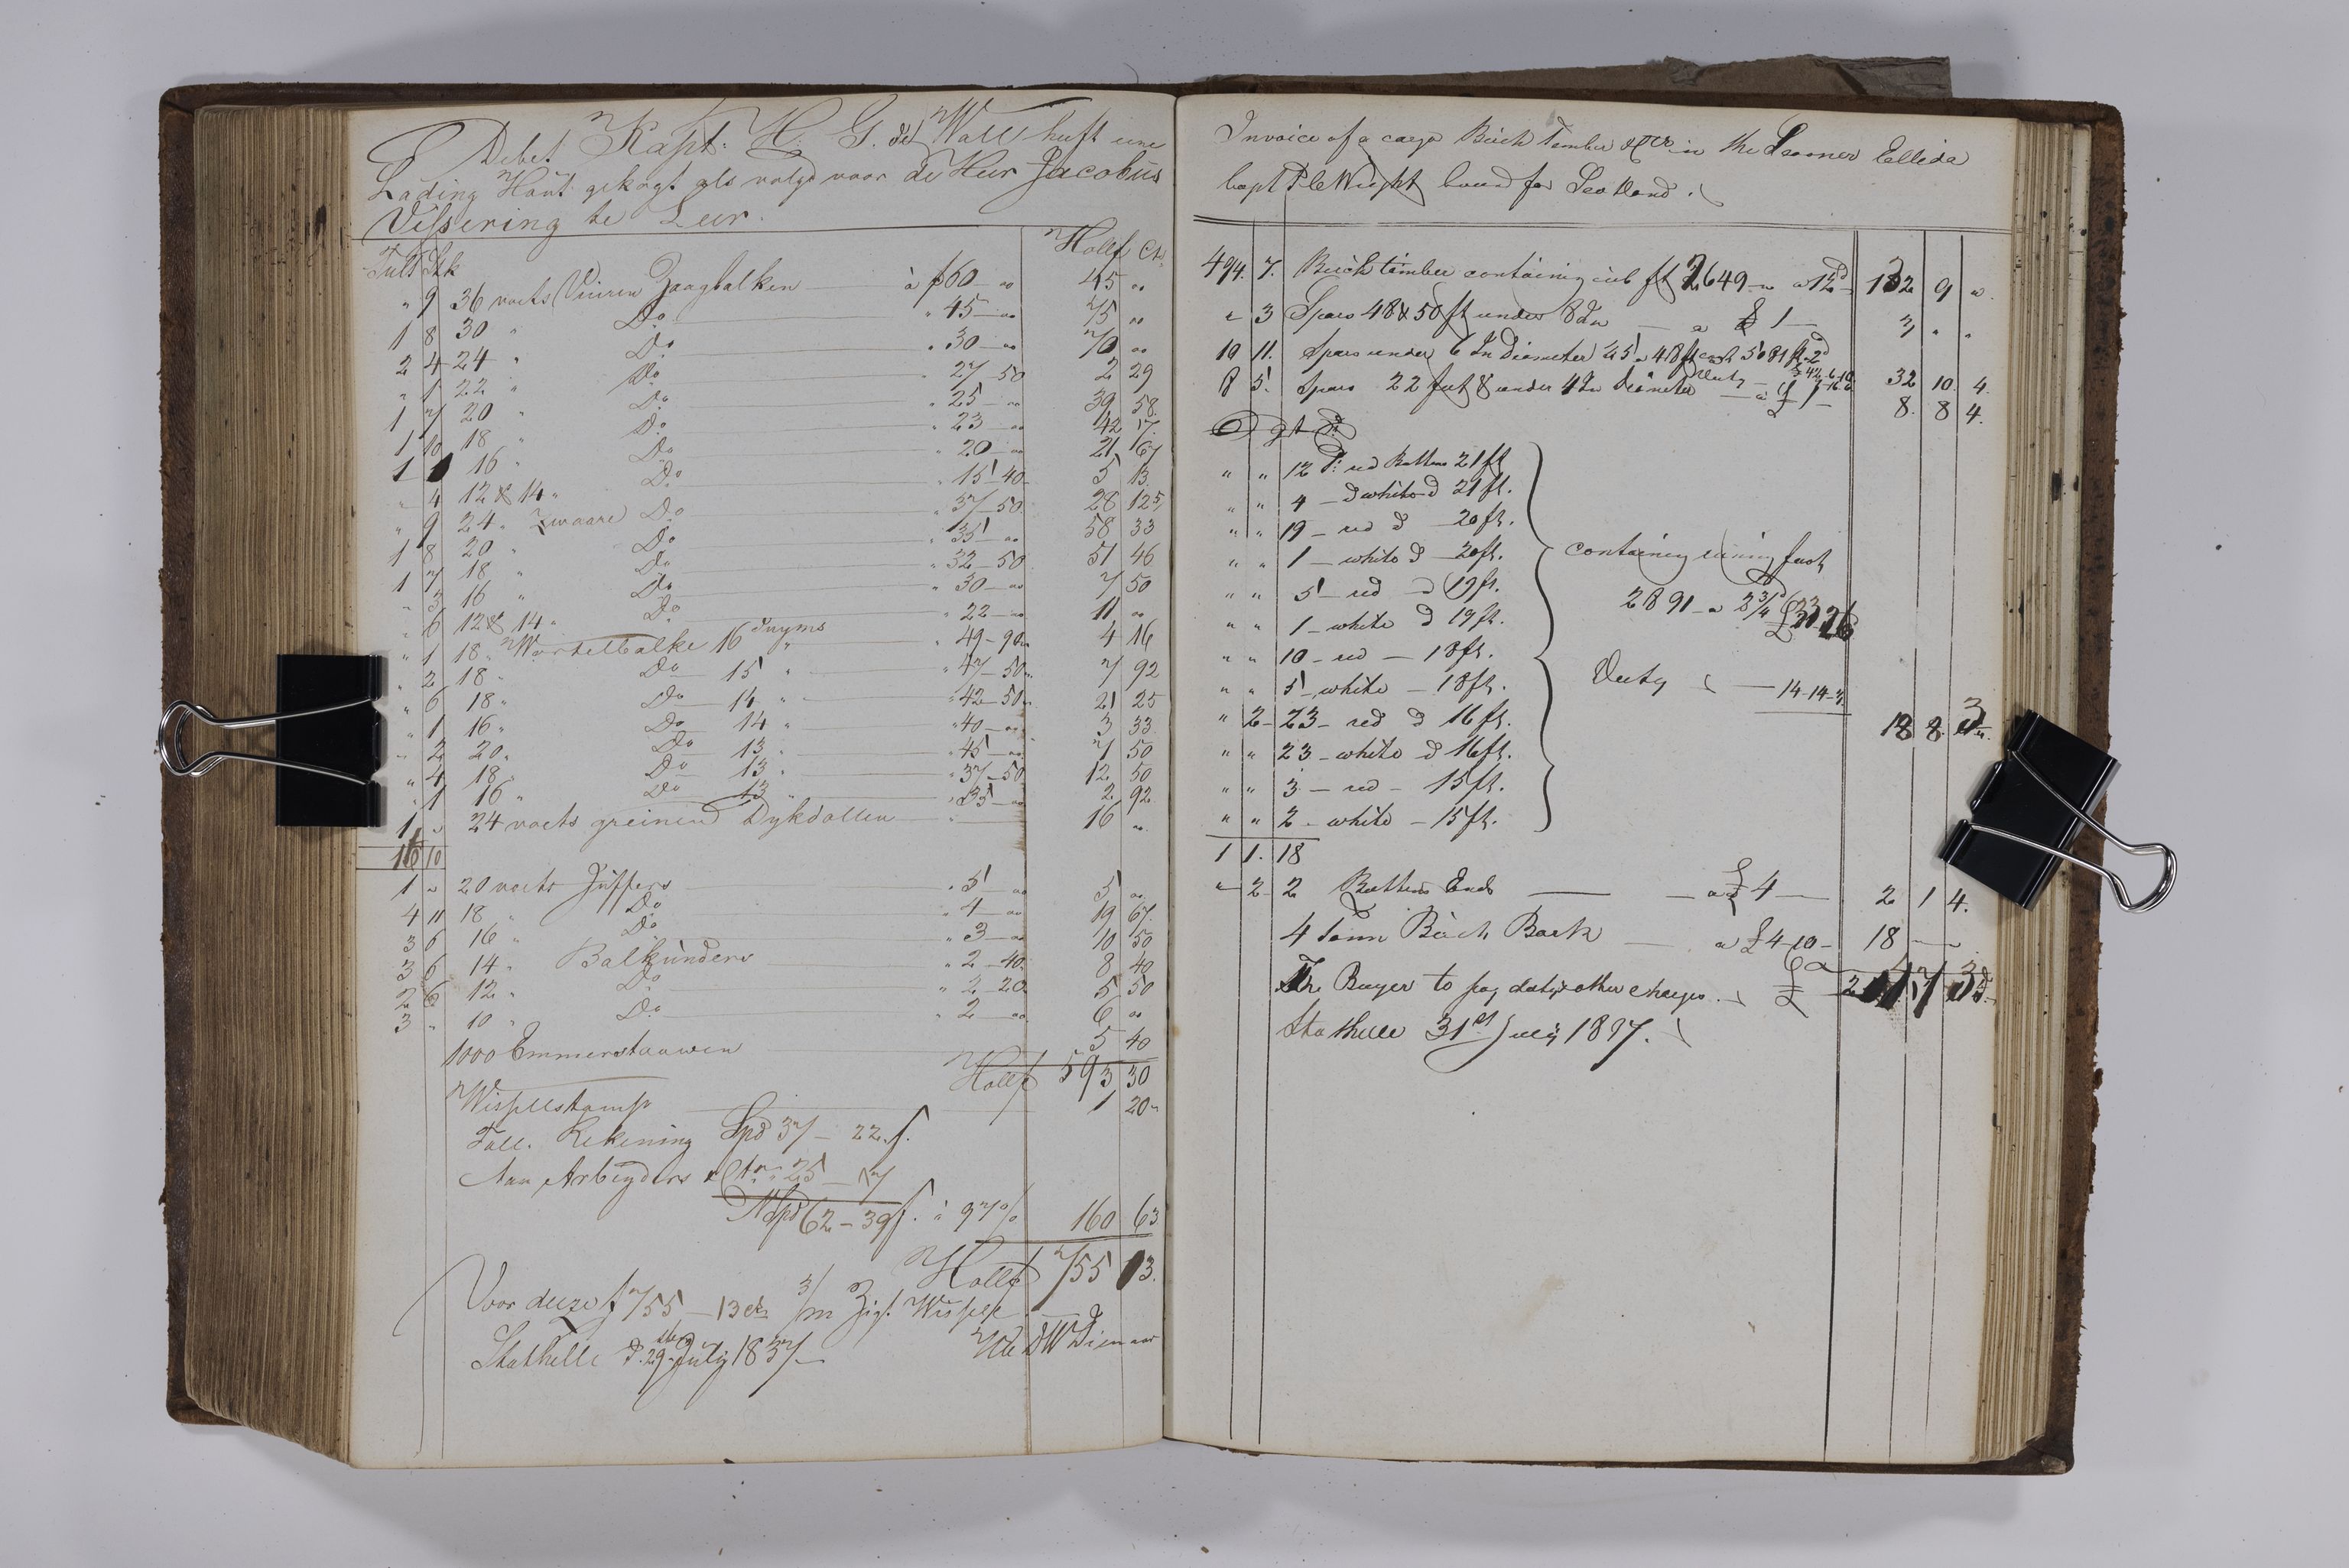 Debet Kapt: H. G. de Wall heeft eene
Lading Hout gekogt als volgd voor de Heer Jacobus
Vissering te Leer.
Tult Stk Hollf Cts
" 9 36 voets Vuuren Zaagbalken à f 60 — " 45 "
1 8 30 " Do " 45 — " 75 "
2 4 24 " Do " 30 — " 70 "
" 1 22 " Do " 27 — 50 2 29
1 7 20 " Do " 25 — " 39 58
1 10 18 " Do " 23 — " 42 17
1 1 16 " Do " 20 — " 21 67
" 4 12 & 14 " Do " 15 — 40 5 13
" 9 24 " Zwaare Do " 37 — 50 28 125
1 8 20 " Do " 35 — " 58 33
1 7 18 " Do " 32 — 50 51 46
" 3 16 " Do " 30 — " 7 50
" 6 12 & 14 " Do " 22 — " 11 "
" 1 18 " Wortelbalke 16 duyms " 49 — 90 4 16
" 2 18 " Do 15 " " 47 — 50 7 92
" 6 18 " Do 14 " " 42 — 50 21 25
" 1 16 " Do 14 " " 40 — " 3 33
" 2 20 " Do 13 " " 45 — " 7 50
" 4 18 " Do 13 " " 37 — 50 12 50
" 1 16 " Do 13 " " 35 — " 2 92
1 " 24 voets greinen Dykdallen 16 "
16 10
1 " 20 voets Juffers " 5 — " 5 "
4 11 18 " Do " 4 — " 19 67
3 6 16 " Do " 3 — " 10 50
3 6 14 " Balkunders " 2 — 40 8 40
2 6 12 " Do " 2 — 20 5 50
3 " 10 " Do " 2 — " 6 "
1000 Emmerstaaven 5 40
Hollf 593 30
Wisselstamp 1 20
Toll. Rekening Spd 37 — 22 f.
Aan Arbeyders 25 — 17
Spd 62 — 39 f. à 97 % 160 63
Hollf 755 13.
Voor deeze f 755 — 13 cts 3/m Zigt Wissel
Stathelle d. 29 July 1837 UE DW Dienaar
Invoice of a cargo Birch Timber in the Scooner Ellida
Capt P C Wright bound for Scotland.
494. 7. Birch timber containing cub ft 2649 — a 12d — 132 9 "
" 3 Spars 48 & 50 ft under 8 In — a £ 1 — 3 " "
19 11. Spars under 6 In Diameter 45 a 48 ft 5081 ft 2d 32 10 4.
8 5. Spars 22 feet & under 4 In Diameter — a £ 1 — 8. 8 4.
" " 12 P: red Battens 21 ft
" " 4 — d white d 21 ft.
" " 19 — red d — 20 ft.
" " 1 — white d — 20 ft.
" " 5 — red — d 19 ft.
" " 1 — white d 19 ft.
" " 10 — red — 18 ft.
" " 5 — white — 18 ft.
" 2 — 23 — red d 16 ft.
" " 23 — white d 16 ft.
" " 3 — red — 15 ft.
" " 2 — white — 15 ft.
containing runing foot
2891 — a 2 3/4 d
Duty — 14 - 14 -
18 8 3
1 1. 18
" 2 2 Battens Ends — a £ 4 — 2 1 4.
4 Tonn Birch Bark — a £ 4 - 10 - 18 — —
The Buyer to pay duty & other charges.
Stathelle 31st July 1837.